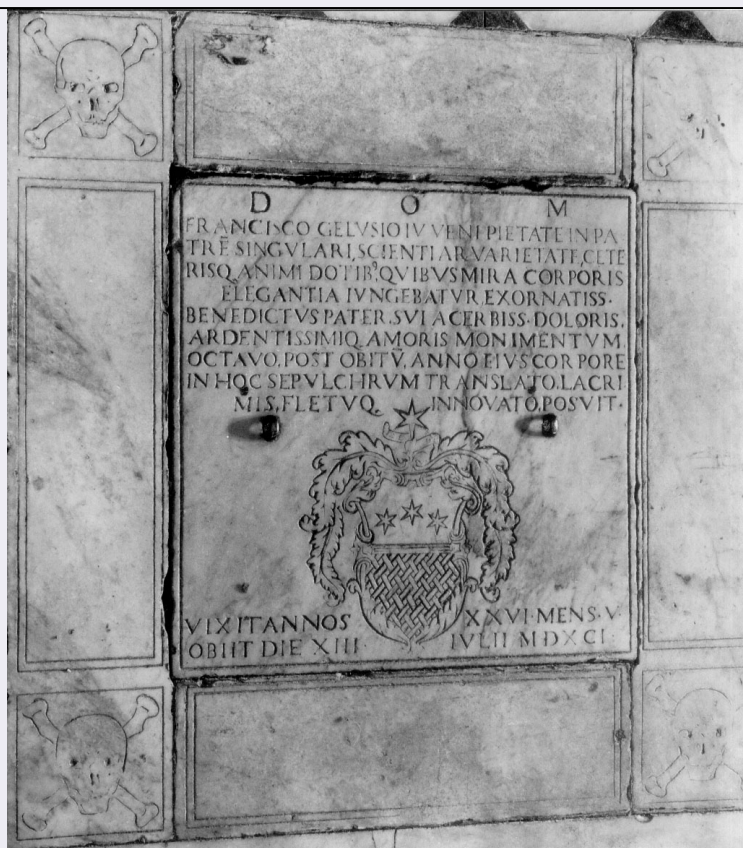 D O M
FRANCISCO GELVSIO IVVENI PIETATE IN PA
TRĒ SINGVLARI, SCIENTIAR VARIETATE, CETE
RISQ ANIMI DOTIB', QVIBVS MIRA CORPORIS
ELEGANTIA IVNGEBATVR EXORNATISS·
BENEDICTVS PATER, SVI ACERBISS· DOLORIS,
ARDENTISSIMIQ AMORIS MONIMENTVM,
OCTAVO, POST OBITV̄, ANNO EIVS CORPORE
IN HOC SEPVLCHRVM TRANSLATO, LACRI
MIS, FLETVQ, INNOVATO, POSVIT·
VIXIT ANNOS XXVI·MENS·V·
OBIIT DIE XIII· IVLII MDXCI·